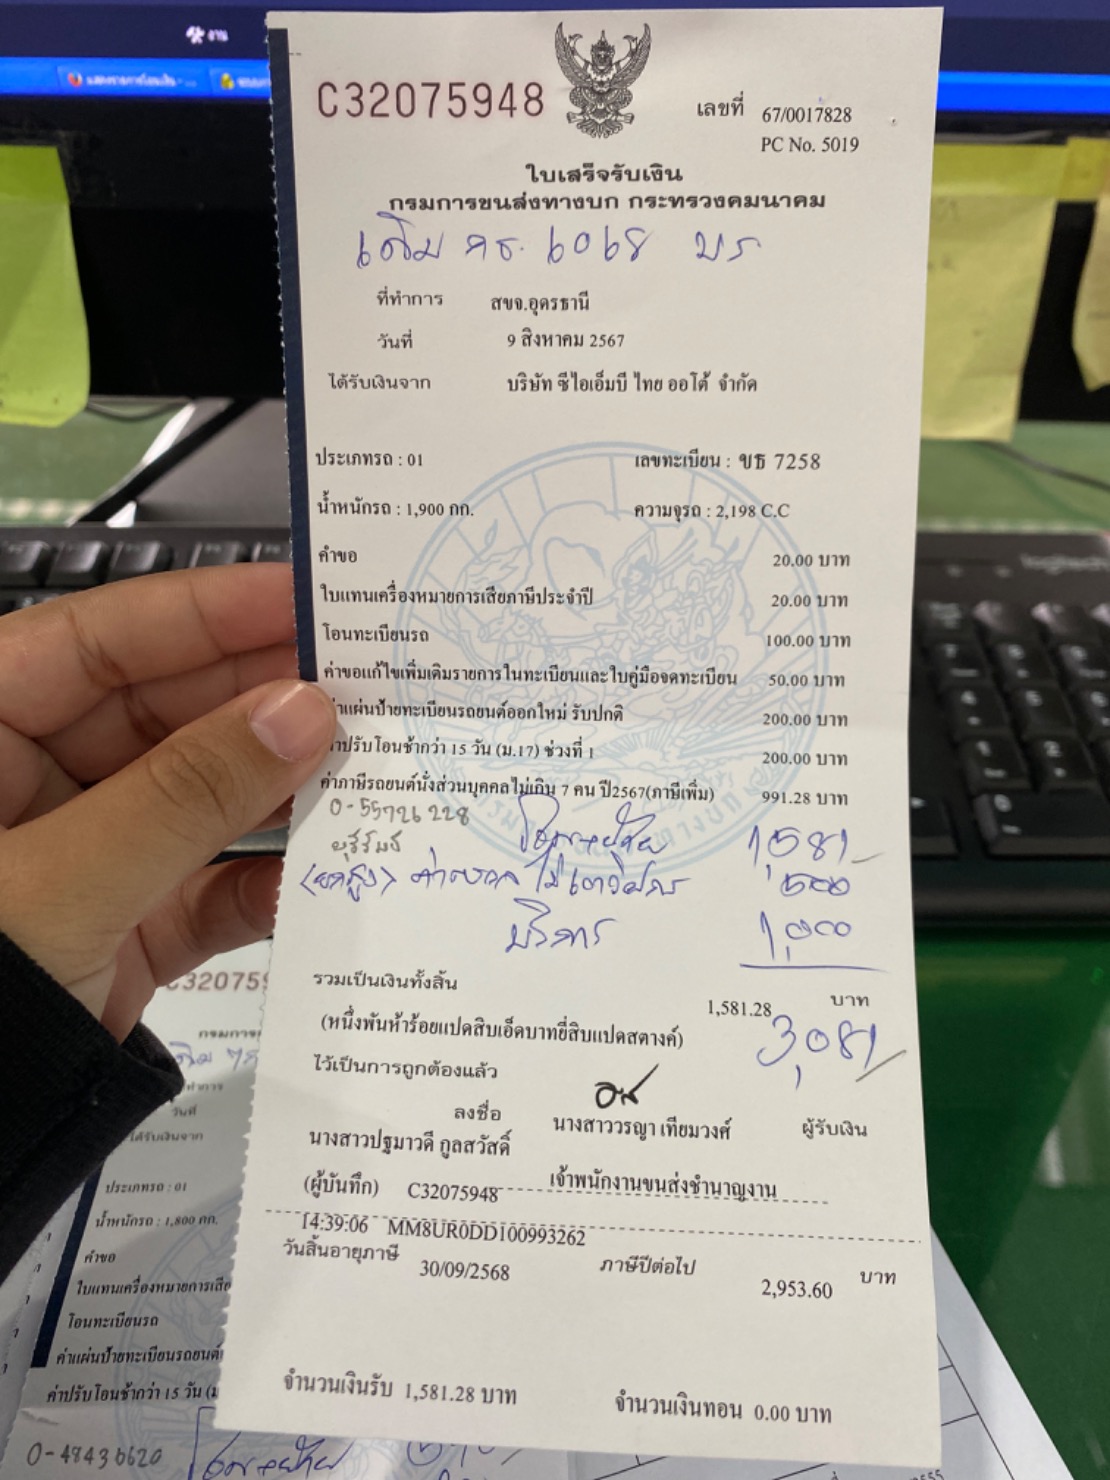 งาน
C32075948
เลขที่ 67/0017828
PC No. 5019
ใบเสร็จรับเงิน
กรมการขนส่งทางบก กระทรวงคมนาคม
เดิม 6068 บร
ที่ทำการ สขจ.อุดรธานี
วันที่ 9 สิงหาคม 2567
ได้รับเงินจาก บริษัท ซีไอเอ็มบี ไทย ออโต้ จำกัด
ประเภทรถ : 01 เลขทะเบียน : ขธ 7258
น้ำหนักรถ : 1,900 กก. ความจุรถ : 2,198 C.C
คำขอ 20.00 บาท
ใบแทนเครื่องหมายการเสียภาษีประจำปี 20.00 บาท
โอนทะเบียนรถ 100.00 บาท
ค่าขอแก้ไขเพิ่มเติมรายการในทะเบียนและใบคู่มือจดทะเบียน 50.00 บาท
ค่าแผ่นป้ายทะเบียนรถยนต์ออกใหม่ รับปกติ 200.00 บาท
ค่าปรับโอนช้ากว่า 15 วัน (ม.17) ช่วงที่ 1 200.00 บาท
ค่าภาษีรถยนต์นั่งส่วนบุคคลไม่เกิน 7 คน ปี2567(ภาษีเพิ่ม) 991.28 บาท
0-55726228
โอน+ย้าย 1,581-
ไม่เอาวิ่งตรอ 500
บริการ 1,000
รวมเป็นเงินทั้งสิ้น 1,581.28 บาท
(หนึ่งพันห้าร้อยแปดสิบเอ็ดบาทยี่สิบแปดสตางค์) 3,081
ไว้เป็นการถูกต้องแล้ว
ลงชื่อ นางสาววรญา เทียมวงศ์ ผู้รับเงิน
นางสาวปฐมาวดี กูลสวัสดิ์
(ผู้บันทึก) C32075948 เจ้าพนักงานขนส่งชำนาญงาน
14:39:06 MM8UR0DD100993262
วันสิ้นอายุภาษี 30/09/2568 ภาษีปีต่อไป 2,953.60 บาท
จำนวนเงินรับ 1,581.28 บาท จำนวนเงินทอน 0.00 บาท
C32075
วันที่
ได้รับเงินจาก
ประเภทรถ : 01
น้ำหนักรถ : 1,800 กก.
คำขอ
ใบแทนเครื่องหมายการเสีย
โอนทะเบียนรถ
ค่าแผ่นป้ายทะเบียนรถยนต์
ค่าปรับโอนช้ากว่า 15 วัน
0-48436620
โอน+ย้าย